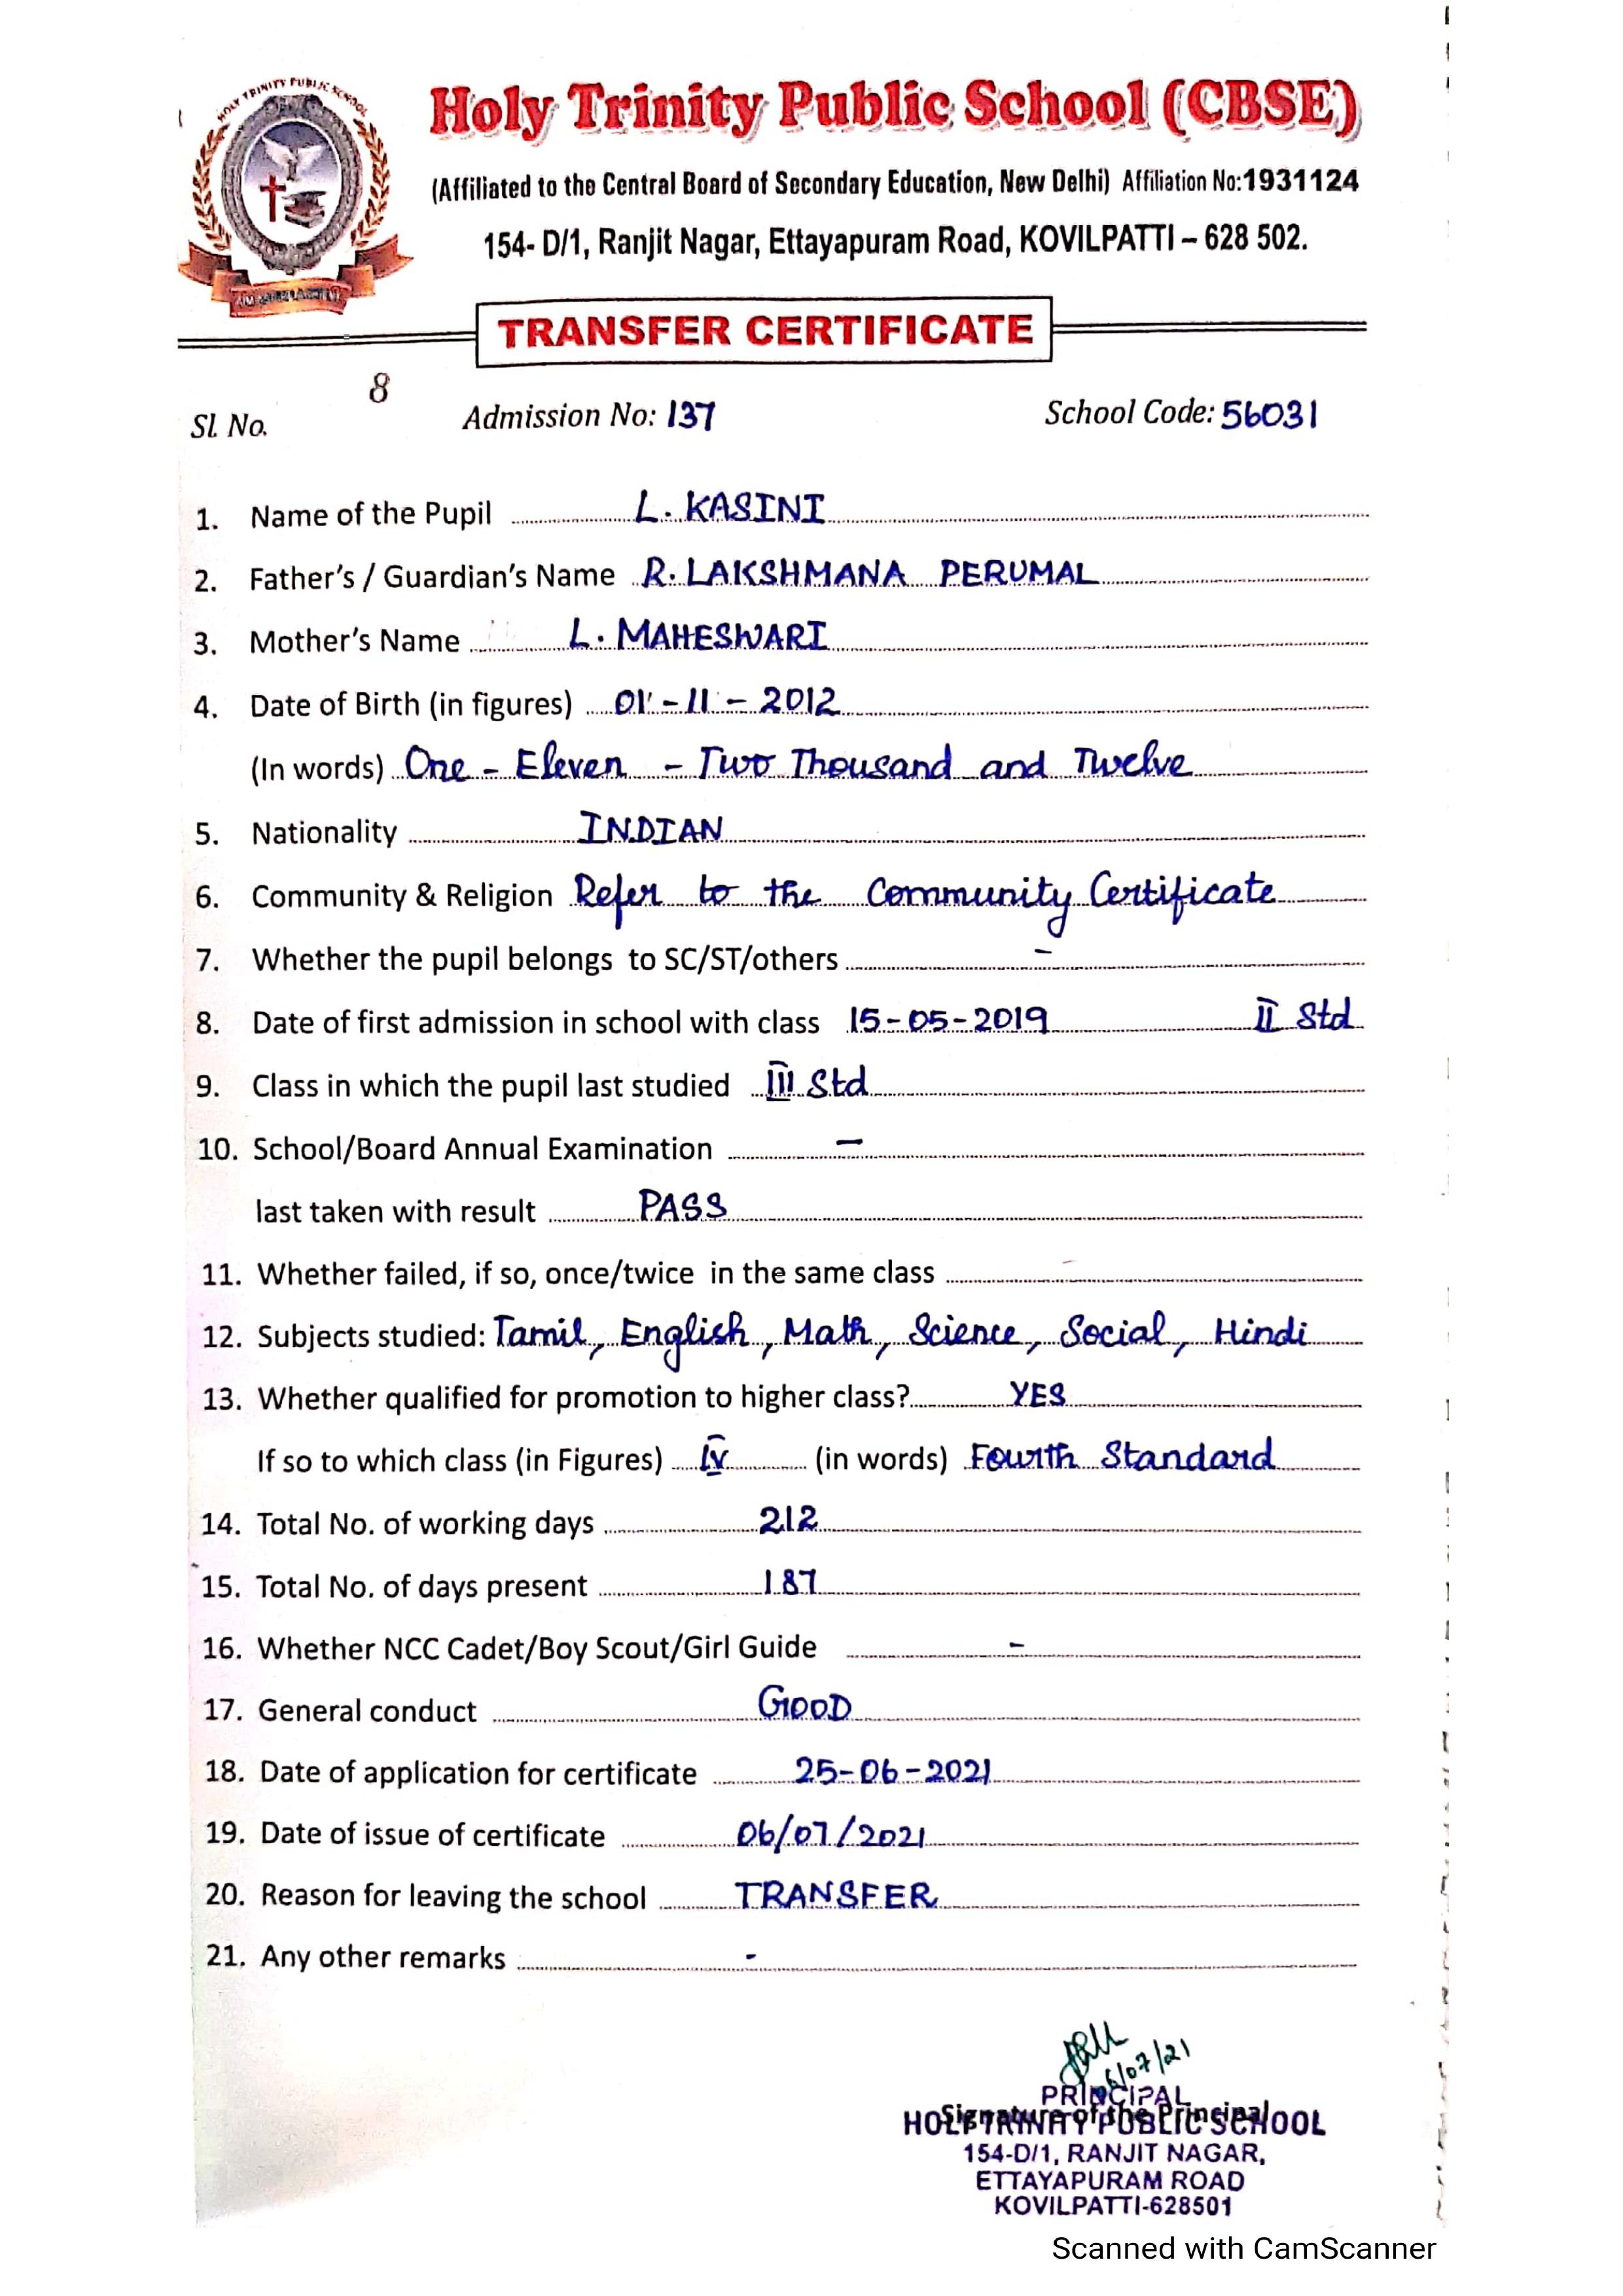 HOLY TRINITY PUBLIC SCHOOL
Holy Trinity Public School (CBSE)
(Affiliated to the Central Board of Secondary Education, New Delhi) Affiliation No:1931124
154- D/1, Ranjit Nagar, Ettayapuram Road, KOVILPATTI – 628 502.
TRANSFER CERTIFICATE
Sl. No. 8 Admission No: 137 School Code: 56031
1. Name of the Pupil L. KASINI
2. Father's / Guardian's Name R. LAKSHMANA PERUMAL
3. Mother's Name L. MAHESWARI
4. Date of Birth (in figures) 01 - 11 - 2012
(In words) One - Eleven - Two Thousand and Twelve
5. Nationality INDIAN
6. Community & Religion Refer to the Community Certificate
7. Whether the pupil belongs to SC/ST/others -
8. Date of first admission in school with class 15-05-2019 II Std
9. Class in which the pupil last studied III Std
10. School/Board Annual Examination -
last taken with result PASS
11. Whether failed, if so, once/twice in the same class -
12. Subjects studied: Tamil, English, Math, Science, Social, Hindi
13. Whether qualified for promotion to higher class? YES
If so to which class (in Figures) IV (in words) Fourth Standard
14. Total No. of working days 212
15. Total No. of days present 187
16. Whether NCC Cadet/Boy Scout/Girl Guide -
17. General conduct GOOD
18. Date of application for certificate 25-06-2021
19. Date of issue of certificate 06/07/2021
20. Reason for leaving the school TRANSFER
21. Any other remarks -
06/07/21
PRINCIPAL
Signature of the Principal
HOLY TRINITY PUBLIC SCHOOL
154-D/1, RANJIT NAGAR,
ETTAYAPURAM ROAD
KOVILPATTI-628501
Scanned with CamScanner